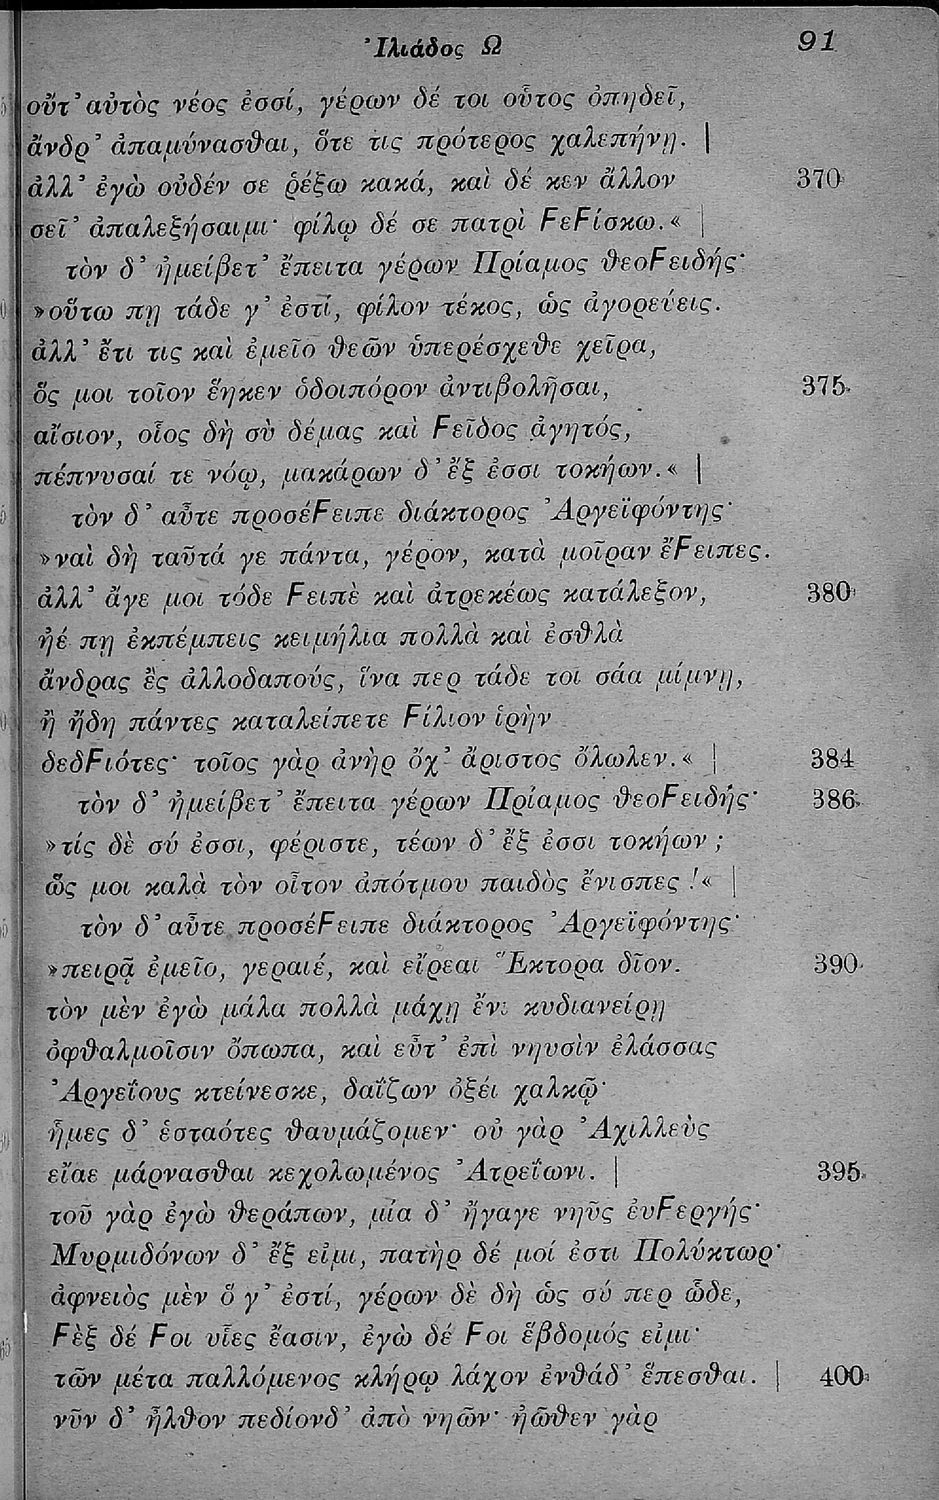 Ἰλιάδος Ω 91
οὔτ’ αὐτὸς νέος ἐσσί, γέρων δέ τοι οὗτος ὀπηδεῖ,
ἄνδρ’ ἀπαμύνασθαι, ὅτε τις πρότερος χαλεπήνῃ. |
ἀλλ’ ἐγὼ οὐδέν σε ῥέξω κακά, καὶ δέ κεν ἄλλον 370
σεῖ’ ἀπαλεξήσαιμι· φίλῳ δέ σε πατρὶ ϜεϜίσκω.« |
τὸν δ’ ἠμείβετ’ ἔπειτα γέρων Πρίαμος θεοϜειδής·
»οὕτω πῃ τάδε γ’ ἐστί, φίλον τέκος, ὡς ἀγορεύεις.
ἀλλ’ ἔτι τις καὶ ἐμεῖο θεῶν ὑπερέσχεθε χεῖρα,
ὅς μοι τοῖον ἕηκεν ὁδοιπόρον ἀντιβολῆσαι, 375
αἴσιον, οἷος δὴ σὺ δέμας καὶ Ϝεῖδος ἀγητός,
πέπνυσαί τε νόῳ, μακάρων δ’ ἔξ ἐσσι τοκήων.« |
τὸν δ’ αὖτε προσέϜειπε διάκτορος Ἀργεϊφόντης·
»ναὶ δὴ ταῦτά γε πάντα, γέρον, κατὰ μοῖραν ἔϜειπες.
ἀλλ’ ἄγε μοι τόδε Ϝειπὲ καὶ ἀτρεκέως κατάλεξον, 380
ἠέ πῃ ἐκπέμπεις κειμήλια πολλὰ καὶ ἐσθλὰ
ἄνδρας ἒς ἀλλοδαπούς, ἵνα περ τάδε τοι σάα μίμνῃ,
ἢ ἤδη πάντες καταλείπετε Ϝίλιον ἱρὴν
δεδϜιότες· τοῖος γὰρ ἀνὴρ ὄχ’ ἄριστος ὄλωλεν.« | 384
τὸν δ’ ἠμείβετ’ ἔπειτα γέρων Πρίαμος θεοϜειδής· 386
»τίς δὲ σύ ἐσσι, φέριστε, τέων δ’ ἔξ ἐσσι τοκήων;
ὥς μοι καλὰ τὸν οἶτον ἀπότμου παιδὸς ἔνισπες!« |
τὸν δ’ αὖτε προσέϜειπε διάκτορος Ἀργεϊφόντης·
»πειρᾷ ἐμεῖο, γεραιέ, καὶ εἴρεαι Ἕκτορα δῖον. 390
τὸν μὲν ἐγὼ μάλα πολλὰ μάχῃ ἔνι κυδιανείρῃ
ὀφθαλμοῖσιν ὄπωπα, καὶ εὖτ’ ἐπὶ νηυσὶν ἐλάσσας
Ἀργεΐους κτείνεσκε, δαΐζων ὀξέι χαλκῷ·
ἧμες δ’ ἑσταότες θαυμάζομεν· οὐ γὰρ Ἀχιλλεὺς
εἴαε μάρνασθαι κεχολωμένος Ἀτρεΐωνι. | 395
τοῦ γὰρ ἐγὼ θεράπων, μία δ’ ἤγαγε νηῦς ἐυϜεργής·
Μυρμιδόνων δ’ ἔξ εἰμι, πατὴρ δέ μοί ἐστι Πολύκτωρ·
ἀφνειὸς μὲν ὅ γ’ ἐστί, γέρων δὲ δὴ ὡς σύ περ ὧδε,
Ϝὲξ δέ Ϝοι υἷες ἔασιν, ἐγὼ δέ Ϝοι ἕβδομός εἰμι·
τῶν μέτα παλλόμενος κλήρῳ λάχον ἐνθάδ’ ἕπεσθαι. | 400
νῦν δ’ ἦλθον πεδίονδ’ ἀπὸ νηῶν· ἠῶθεν γὰρ